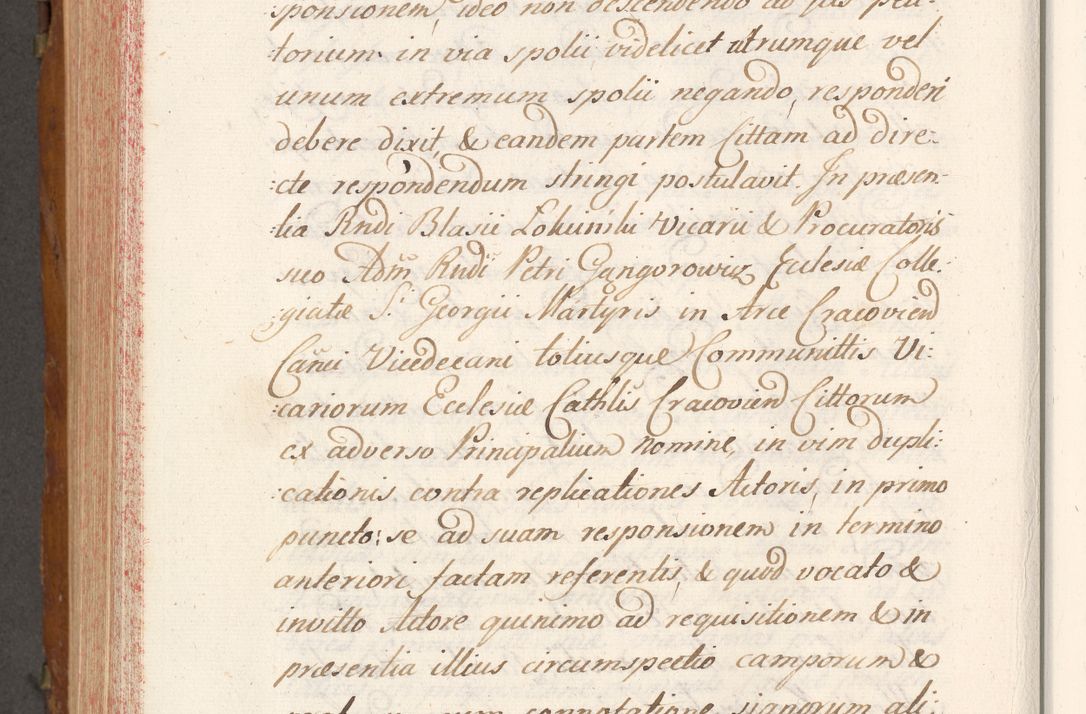 sponsionem, ideo non descendendo ad jus peti-
torium in via spolii videlicet utrumque vel
unum extremum spolii negando, responderi
debere dixit, & eandem partem Cittam ad dire-
:cte respondendum stringi postulavit. In præsen-
:tia Rndi Blasii Vicarii & Procuratoris
suo Adm Rndi Petri Gangorowicz Eclesiæ Colle:
:giatæ S. Georgii Martyris in Arce Cracovien
Canci Vicedecani totiusque Communittis Vi:
:cariorum Ecclesiæ Cathlis Cracovien Cittorum
ex adverso Principalium nomine, in vim dupli:
:cationis contra replicationes Actoris, in primo
puncto: se ad suam responsionem in termino
anteriori factam referentis, & quod vocato &
invitto Actore quinimo ad requisitionem & in
præsentia illius circumspectio camporum &
cum connotatione signorum ali: